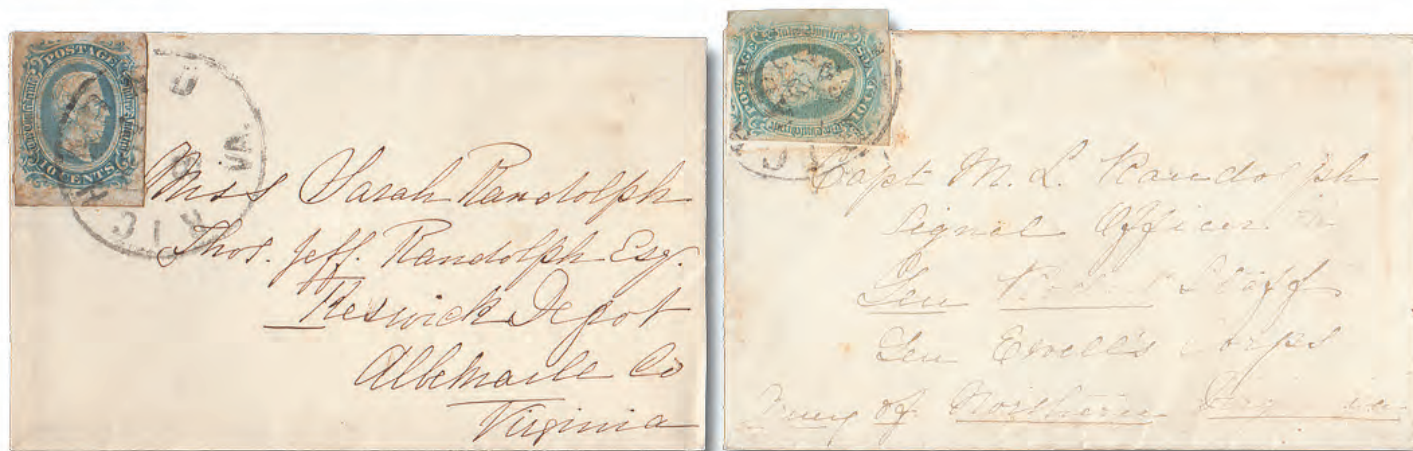 POSTAGE
TEN CENTS
VA.
Miss Sarah Randolph
Thos. Jeff. Randolph Esq.
Keswick Depot
Albemarle Co
Virginia
POSTAGE
TEN CENTS
Capt M. L. Randolph
Signal Officer
Gen Staff
Gen Ewell's Corps
Army of Northern Virginia